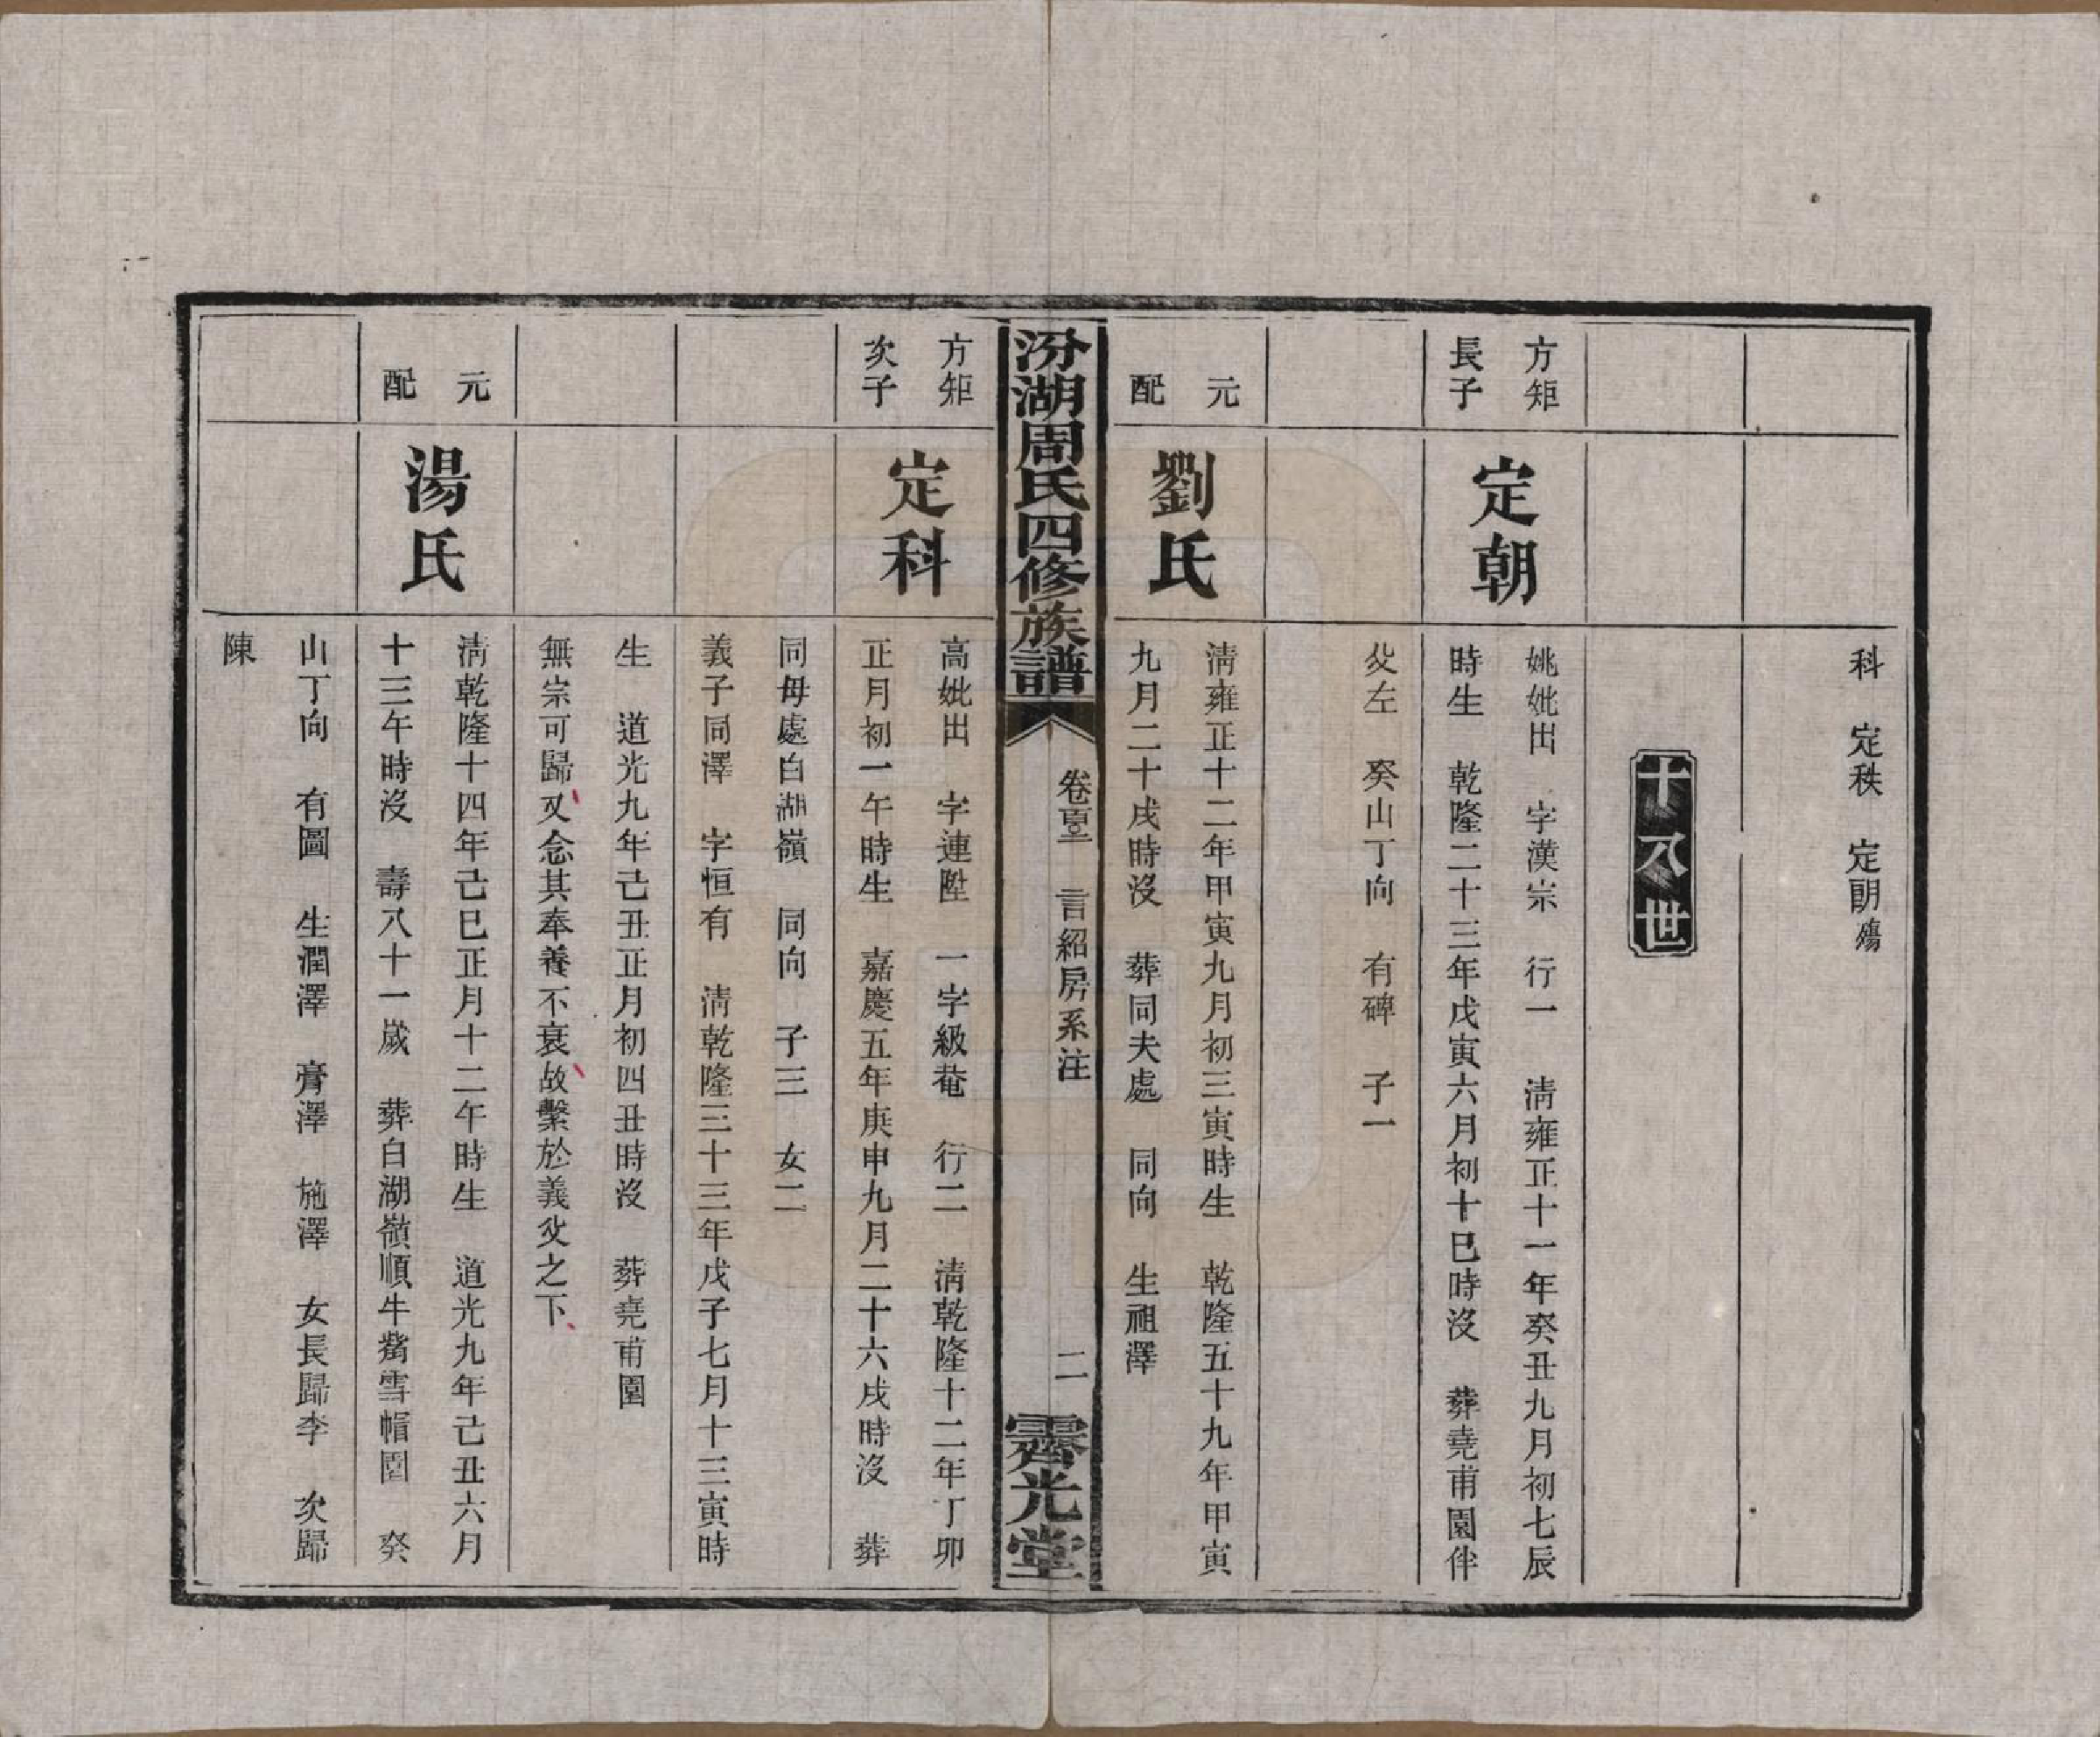 科　定秩　定朙殤
十八世
方矩
長子
定朝
姚妣出　字漢宗　行一　淸雍正十一年癸丑九月初七辰
時生　乾隆二十三年戊寅六月初十巳時沒　葬堯甫園伴
父左　癸山丁向　有碑　子一
元
配
劉氏
淸雍正十二年甲寅九月初三寅時生　乾隆五十九年甲寅
九月二十戌時沒　葬同夫處　同向　生祖澤
汾湖周氏四修族譜
卷　言紹房系注
二
霽光堂
方矩
次子
定科
高妣出　字連陞　一字級菴　行二　淸乾隆十二年丁卯
正月初一午時生　嘉慶五年庚申九月二十六戌時沒　葬
同母處白湖嶺　同向　子三　女二
義子同澤　字恒有　淸乾隆三十三年戊子七月十三寅時
生　道光九年己丑正月初四丑時沒　葬堯甫園
無宗可歸又念其奉養不衰故繫於義父之下
元
配
湯氏
淸乾隆十四年己巳正月十二午時生　道光九年己丑六月
十三午時沒　壽八十一歲　葬白湖嶺順牛雪帽圍　癸
山丁向　有圖　生潤澤　膏澤　施澤　女長歸李　次歸
陳